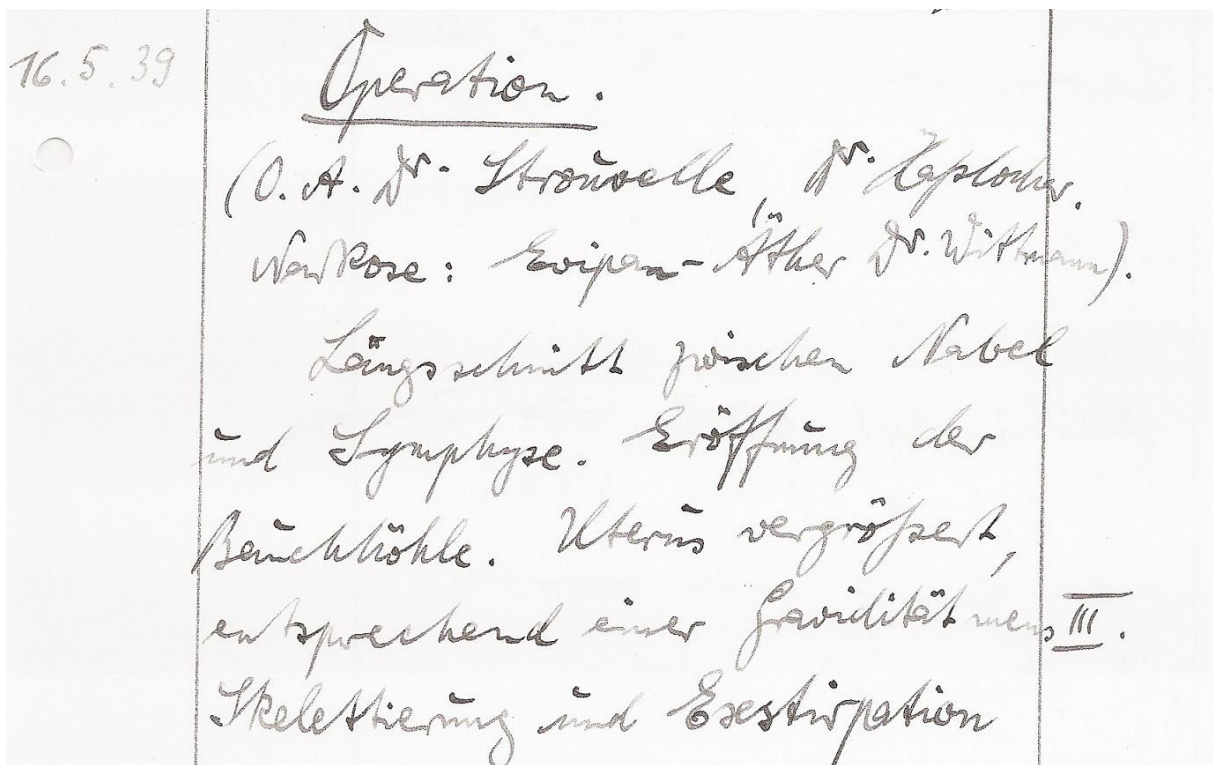 16.5.39
Operation.
(O. A. Dr. Strouvelle, Dr.
Narkose: Evipan-Äther Dr. Wittmann).
Längsschnitt zwischen Nabel
und Symphyse. Eröffnung der
Bauchhöhle. Uterus vergrößert,
entsprechend einer Gravidität mens III.
Skelettierung und Exstirpation